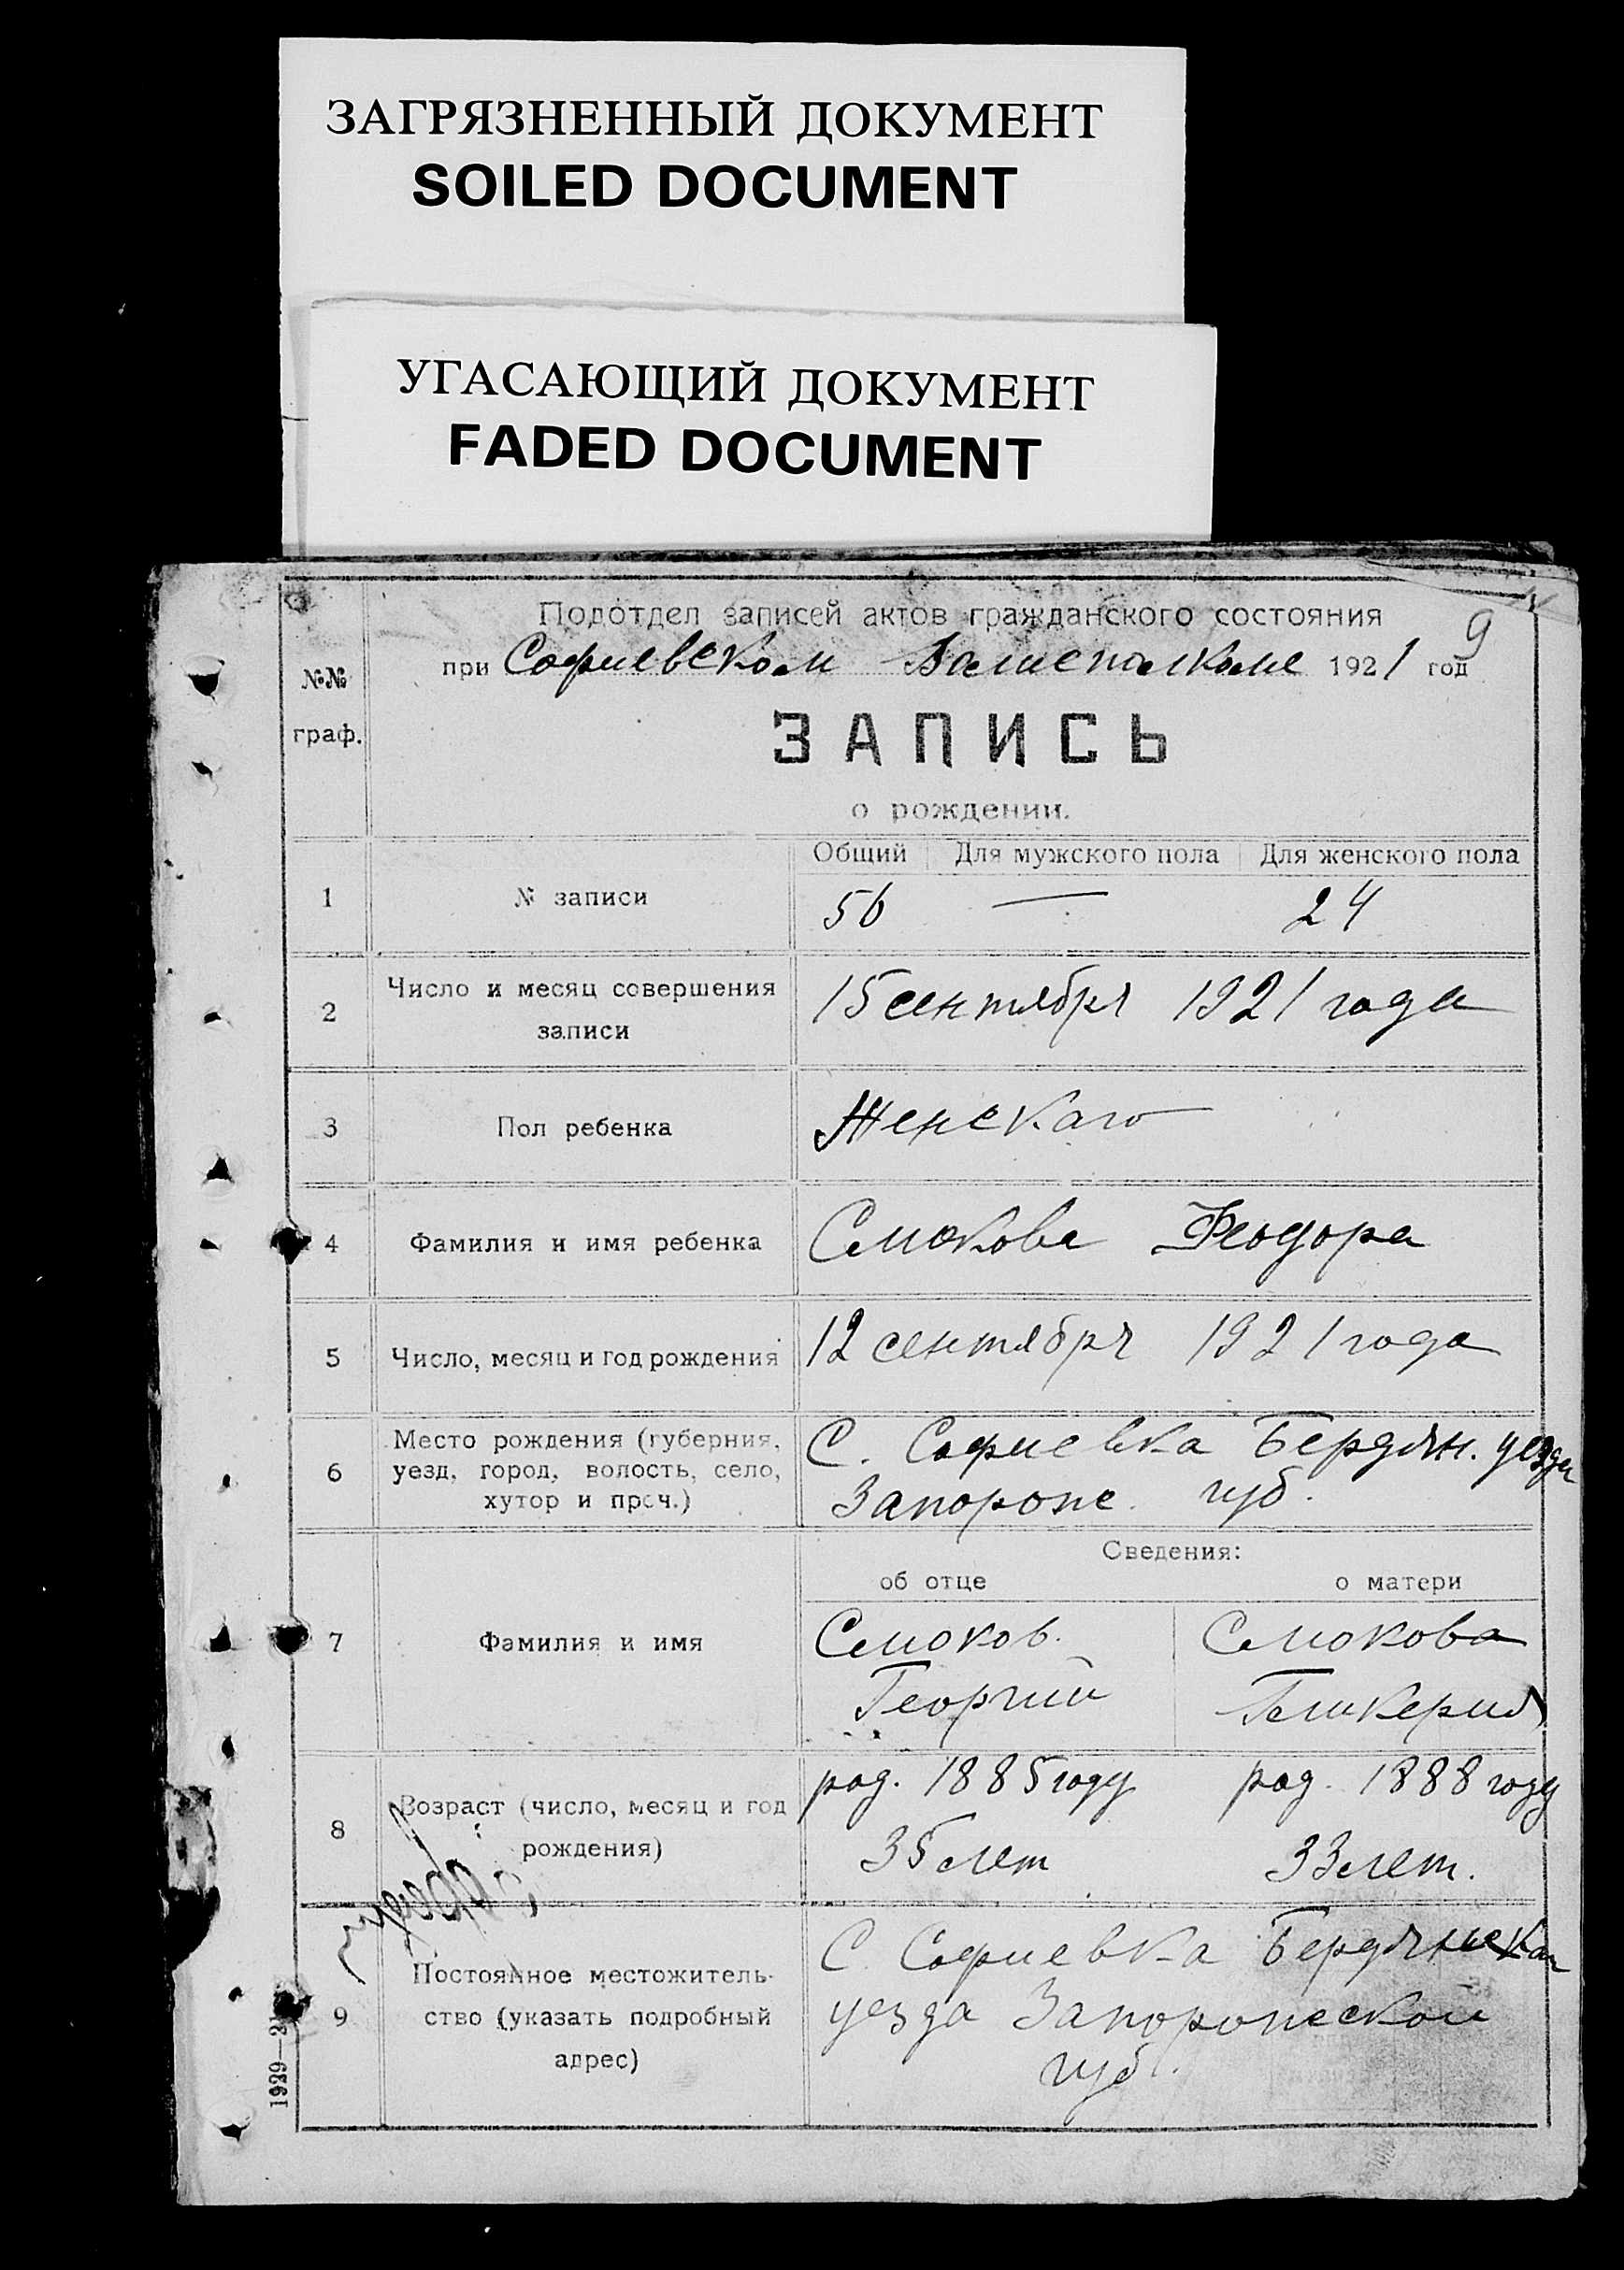 ЗАГРЯЗНЕННЫЙ ДОКУМЕНТ
SOILED DOCUMENT
УГАСАЮЩИЙ ДОКУМЕНТ
FADED DOCUMENT
9
Подотдел записей актов гражданского состояния
при Софиевском 1921 год
№№
граф.
ЗАПИСЬ
о рождении.
Общий Для мужского пола Для женского пола
1 № записи 56 — 24
2 Число и месяц совершения
записи
15 сентября 1921 года
3 Пол ребенка Женскаго
4 Фамилия и имя ребенка Смокова Феодора
5 Число, месяц и год рождения 12 сентября 1921 года
6 Место рождения (губерния,
уезд, город, волость, село,
хутор и проч.)
С. Софиевка Бердян. уезда
Запорож. губ.
Сведения:
об отце о матери
7 Фамилия и имя
Смоков. Смокова
Георгий Гликерия
8 Возраст (число, месяц и год
рождения)
род. 1885 году род. 1888 году
35 лет 33 лет.
9 Постоянное местожитель-
ство (указать подробный
адрес)
С. Софиевка Бердянскаг
уезда Запорожской
губ.